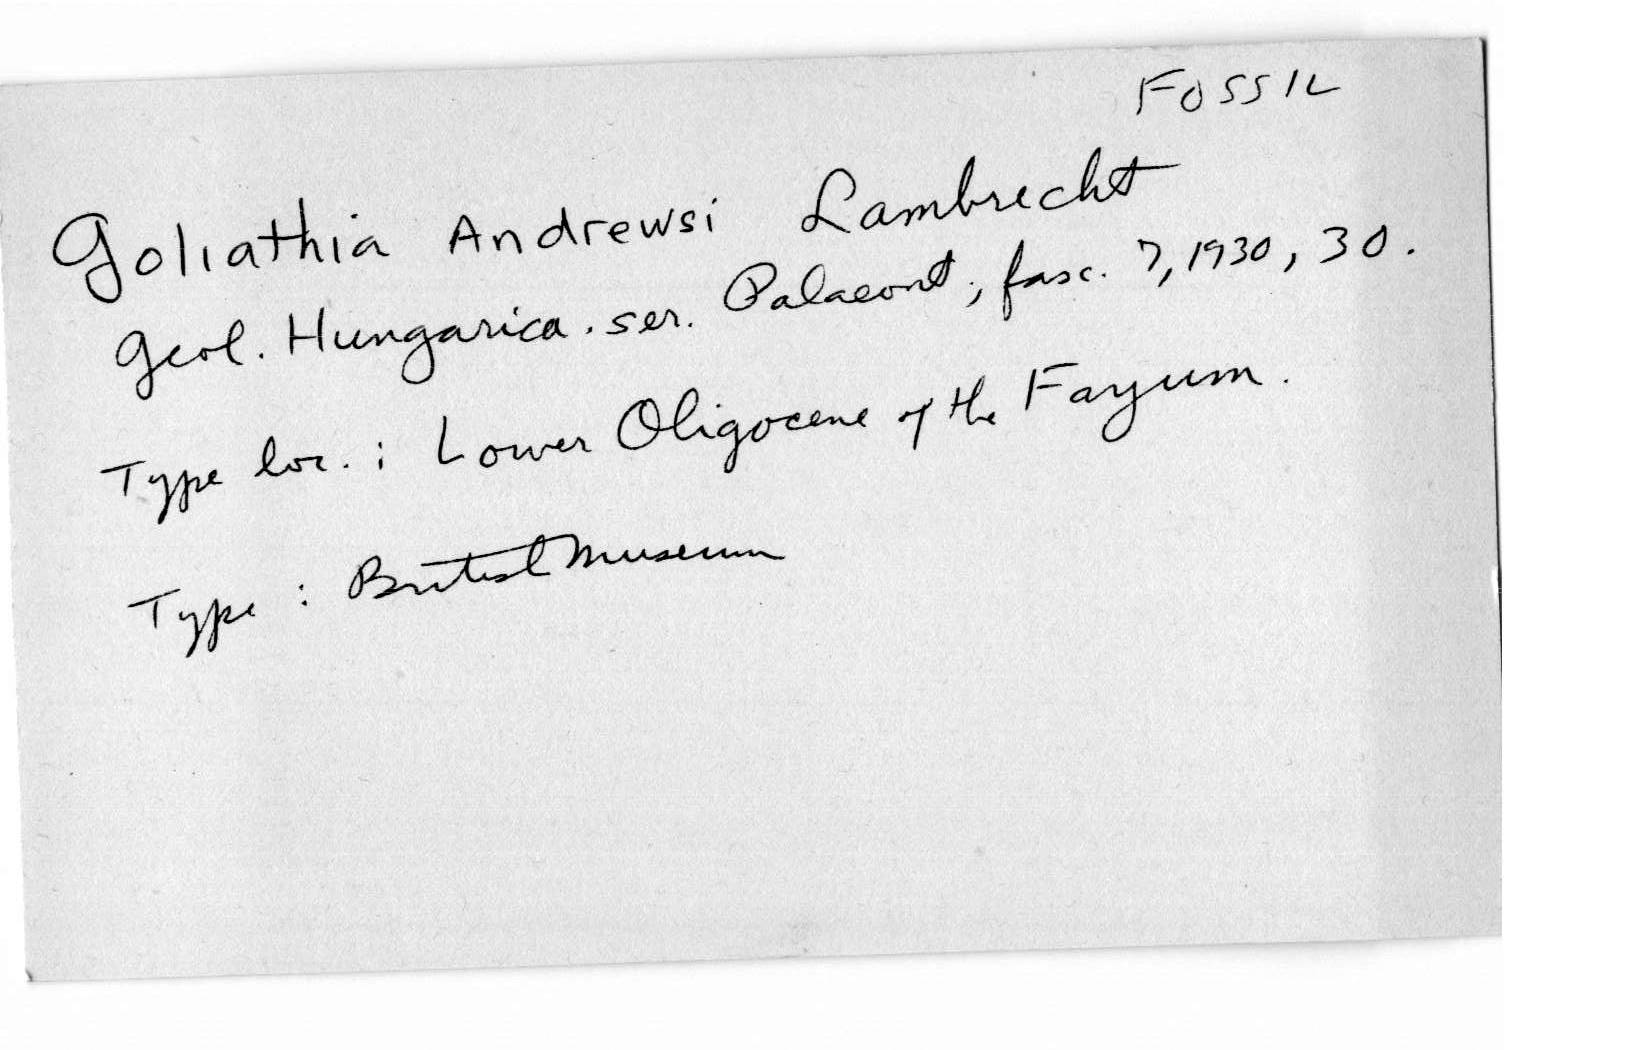 FOSSIL
Goliathia Andrewsi Lambrecht
Geol. Hungarica. ser. Palaeont, fasc. 7, 1930, 30.
Type loc. : Lower Oligocene of the Fayum.
Type : British Museum